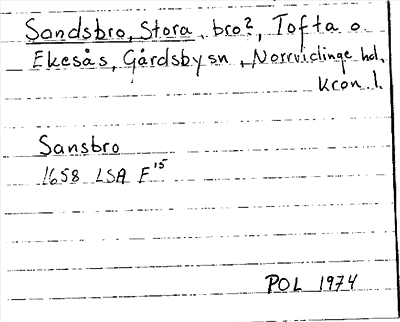 Sandsbro, Stora, bro?, Tofta o.
Ekesås, Gårdsby sn, Norrvidinge hd,
Kron. l.
Sansbro
1658 LSA F 15
POL 1974